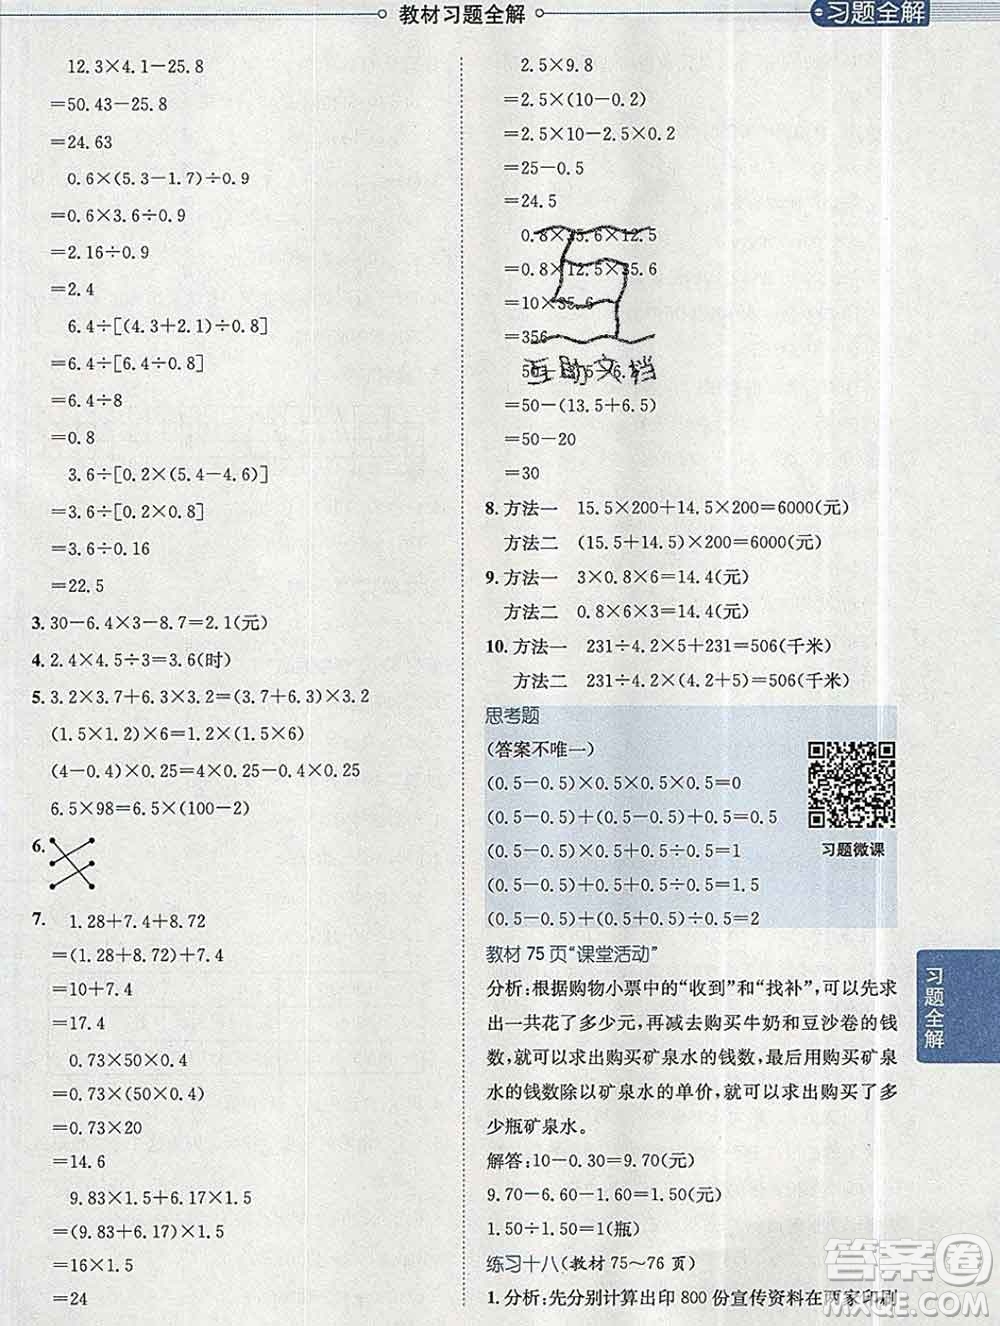 教材习题全解
习题全解
12.3×4.1-25.8
=50.43-25.8
=24.63
0.6×(5.3-1.7)÷0.9
=0.6×3.6÷0.9
=2.16÷0.9
=2.4
6.4÷[(4.3+2.1)÷0.8]
=6.4÷[6.4÷0.8]
=6.4÷8
=0.8
3.6÷[0.2×(5.4-4.6)]
=3.6÷[0.2×0.8]
=3.6÷0.16
=22.5
3. 30-6.4×3-8.7=2.1(元)
4. 2.4×4.5÷3=3.6(时)
5. 3.2×3.7+6.3×3.2=(3.7+6.3)×3.2
(1.5×1.2)×6=1.2×(1.5×6)
(4-0.4)×0.25=4×0.25-0.4×0.25
6.5×98=6.5×(100-2)
6.
7. 1.28+7.4+8.72
=(1.28+8.72)+7.4
=10+7.4
=17.4
0.73×50×0.4
=0.73×(50×0.4)
=0.73×20
=14.6
9.83×1.5+6.17×1.5
=(9.83+6.17)×1.5
=16×1.5
=24
2.5×9.8
=2.5×(10-0.2)
=2.5×10-2.5×0.2
=25-0.5
=24.5
0.8×35.6×12.5
=0.8×12.5×35.6
=10×35.6
=356
互助文档
=50-(13.5+6.5)
=50-20
=30
8. 方法一 15.5×200+14.5×200=6000(元)
方法二 (15.5+14.5)×200=6000(元)
9. 方法一 3×0.8×6=14.4(元)
方法二 0.8×6×3=14.4(元)
10. 方法一 231÷4.2×5+231=506(千米)
方法二 231÷4.2×(4.2+5)=506(千米)
思考题
(答案不唯一)
(0.5-0.5)×0.5×0.5×0.5=0
(0.5-0.5)+(0.5-0.5)+0.5=0.5
(0.5-0.5)×0.5+0.5÷0.5=1
(0.5-0.5)+0.5+0.5÷0.5=1.5
(0.5+0.5)÷0.5+0.5-0.5=2
习题微课
教材 75 页“课堂活动”
分析:根据购物小票中的“收到”和“找补”,可以先求
出一共花了多少元,再减去购买牛奶和豆沙卷的钱
数,就可以求出购买矿泉水的钱数,最后用购买矿泉
水的钱数除以矿泉水的单价,就可以求出购买了多
少瓶矿泉水。
解答:10-0.30=9.70(元)
9.70-6.60-1.60=1.50(元)
1.50÷1.50=1(瓶)
练习十八(教材 75～76 页)
1. 分析:先分别计算出印 800 份宣传资料在两家印刷
习题全解
答案圈
MXQE.COM